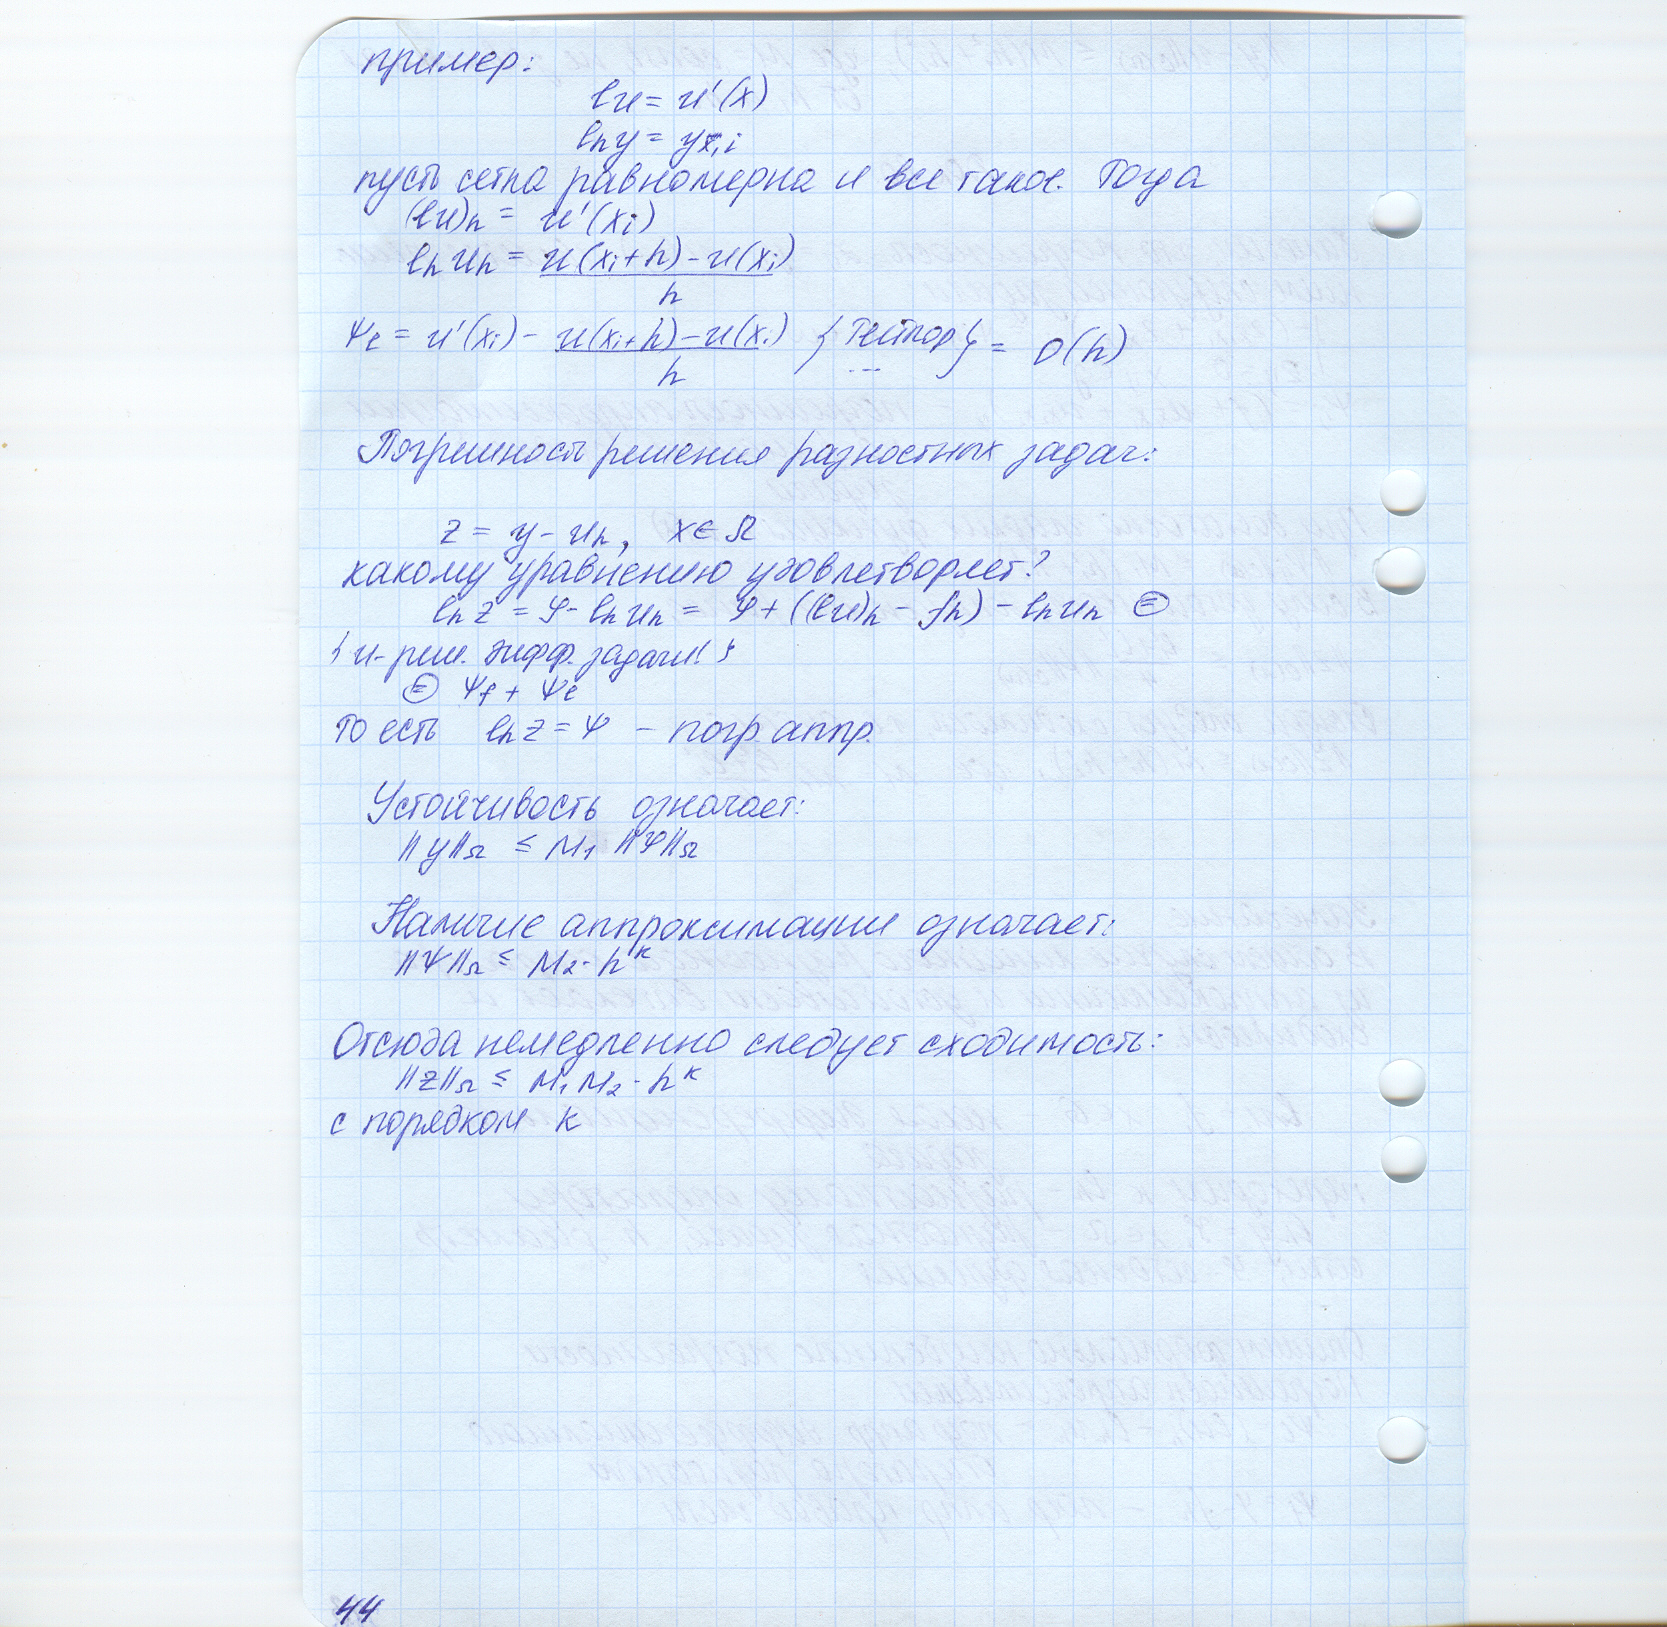 пример:
lu = u'(x)
lₕy = yx,i
пусть сетка равномерна и все такое. Тогда
(lu)ₕ = u'(xᵢ)
lₕuₕ = (u(xᵢ+h) - u(xᵢ))/h
Ψₗ = u'(xᵢ) - (u(xᵢ+h) - u(xᵢ))/h {Тейлор ...} = O(h)
Погрешность решения разностных задач:
z = y - uₕ, x ∈ Ω
какому уравнению удовлетворяет?
lₕz = φ - lₕuₕ = φ + ((lu)ₕ - fₕ) - lₕuₕ ⊜
{u - реш. дифф. задачи!}
⊜ Ψf + Ψₗ
то есть lₕz = Ψ - погр аппр.
Устойчивость означает:
||y||Ω ≤ M₁ ||φ||Ω
Наличие аппроксимации означает:
||Ψ||Ω ≤ M₂·hᵏ
Отсюда немедленно следует сходимость:
||z||Ω ≤ M₁M₂·hᵏ
с порядком k
44